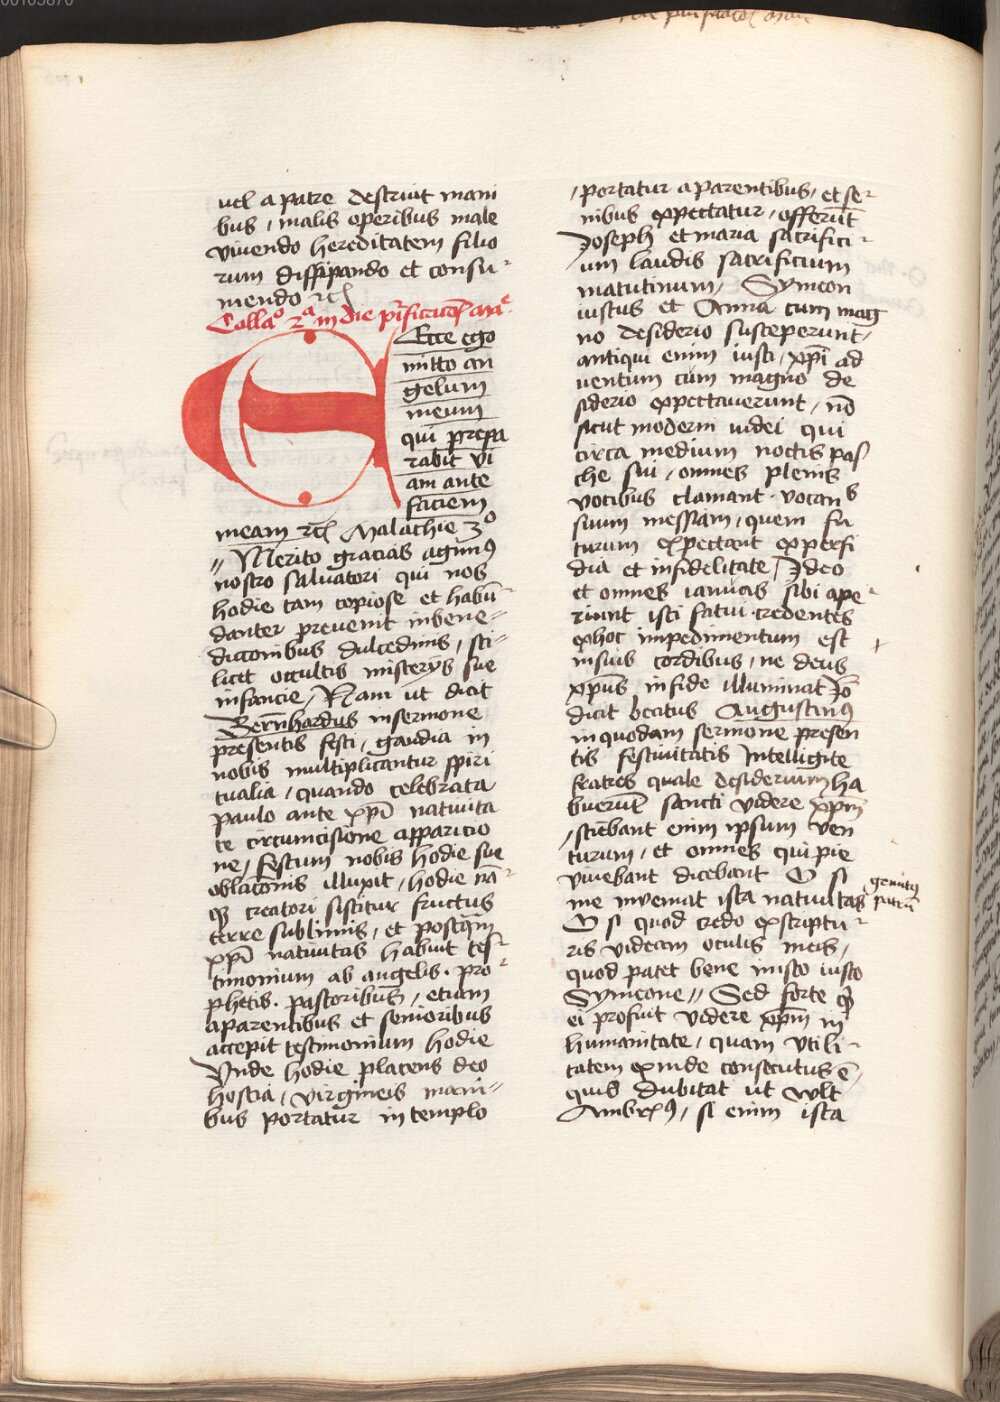 00103870
uel a patre destruit mani
bus / malis operibus male
viuendo hereditatem filio
rum dissipando et consu-
mendo rcͣ
Collaᵒ 2ᵃ in die pͥficacoͤis marͤ
Ecce ego
mitto an
gelum
meum
qui prepa
rabit vi
am ante
faciem
meam rcͣ Malachie 3ᵒ
// Merito gracias agimꝰ
nostro saluatori qui nos
hodie tam copiose et habū-
danter preuenit in bene-
diccionibus dulcedinis / sci-
licet occultis misterijs sue
infancie / Nam ut dicit
Bern̄hardus in sermone
presentis festi / gaudia in
nobis multiplicantur spiri
tualia / quando celebrata
paulo ante xpī natiuita
te circumcisione apparicio
ne / festum nobis hodie sue
oblacōnis illuxit / hodie nā-
qȝ creatori sistitur fructus
terre sublimis / et postq̄m
xpī natiuitas habuit tes-
timonium ab angelis . pro-
phetis . pastoribus / etiam
a parentibus et senioribus
accepit testimonium hodie
Vnde hodie placens deo
hostia / virgineis mani-
bus portatur in templo
/ portatur a parentibus / et se-
nibus exspectatur / offerūt
Joseph et maria sacrifici-
um laudis sacrificium
matutinum / Symeon
iustus et Anna cum mag
no desiderio susceperunt /
antiqui enim iusti / xpī ad
uentum cūm magno de
siderio expectauerunt / nō
sicut moderni iudei qui
circa medium noctis pas
che sui / omnes plenis
vocibus clamant . vocanᵗ
suum messiam / quem fu
turum exspectant ex perfi
dia et infidelitate / Ideo
et omnes ianuas sibi ape-
riunt isti fatui . credentes
exhoc impedimentum est
in suis cordibus / ne deus
xpūs in fide illuminat Iō
dicit beatus Augustinꝰ
in quodam sermone presen
tis festiuitatis Intelligite
fratres quale desiderium ha
buerūt sancti videre xpm̄
/ sciebant enim ipsum ven
turum / et omnes qui pie
viuebant dicebant O si
me inveniat ista natiuitas
O si quod credo ex scriptu-
ris videam oculis meis /
quod patet bene in isto iusto
Symeone // Sed forte qȝ
ei profuit videre xpm̄ in
humanitate / quam vtili-
tatem exinde consecutus ē /
quis dubitat ut vult
Ambrosꝰ / si enim ista